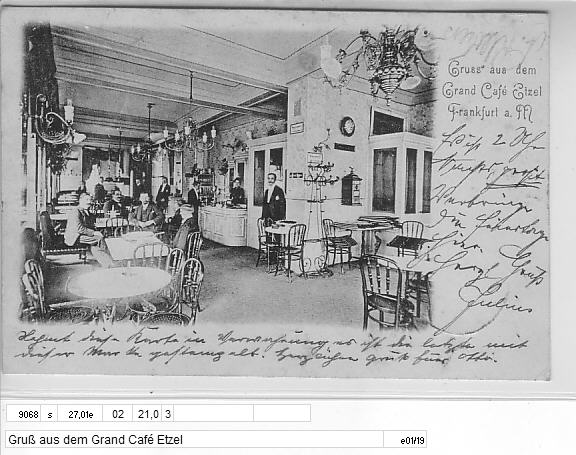 Gruss aus dem
Grand Café Etzel
Frankfurt a. M
2 Uhr
Nachts
Verbringe
die Feiertage
hier. Herzl. Gruß
Julius
diese Karte in Verwahrung es ist die letzte mit
dieser Marke gestempelt. Herzlichen Gruß für Otto.
9068 s 27,01e 02 21,0 3
Gruß aus dem Grand Café Etzel
e01/19